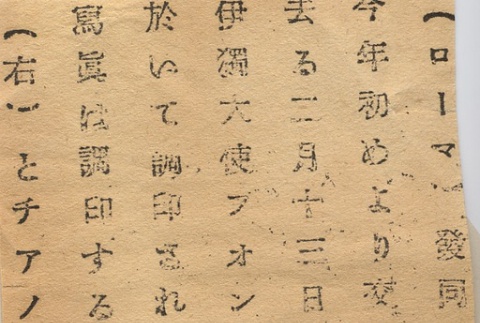 (ローマ 發同
今年初めより交
去る二月十三日
伊獨大使フオン
於いて調印され
寫眞は調印する
(右)とチアノ